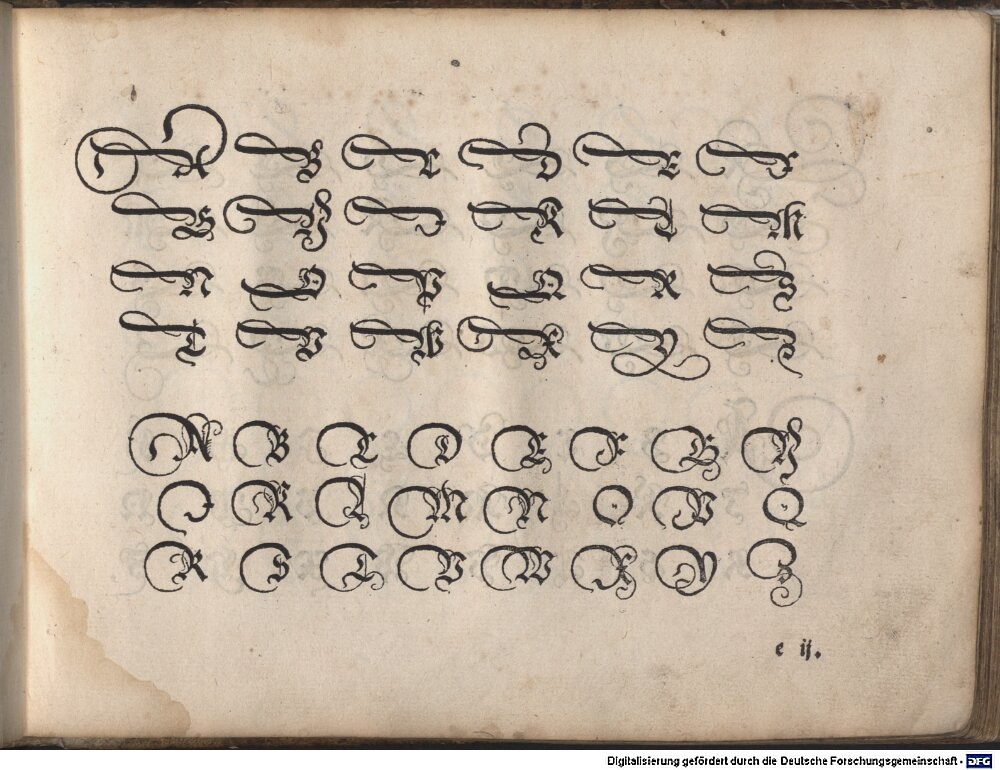 A B C D E F
G H I K L M
N O P Q R S
T V W X Y Z
A B C D E F G H
I K L M N O P Q
R S T V W X Y Z
e ij.
Digitalisierung gefördert durch die Deutsche Forschungsgemeinschaft - DFG